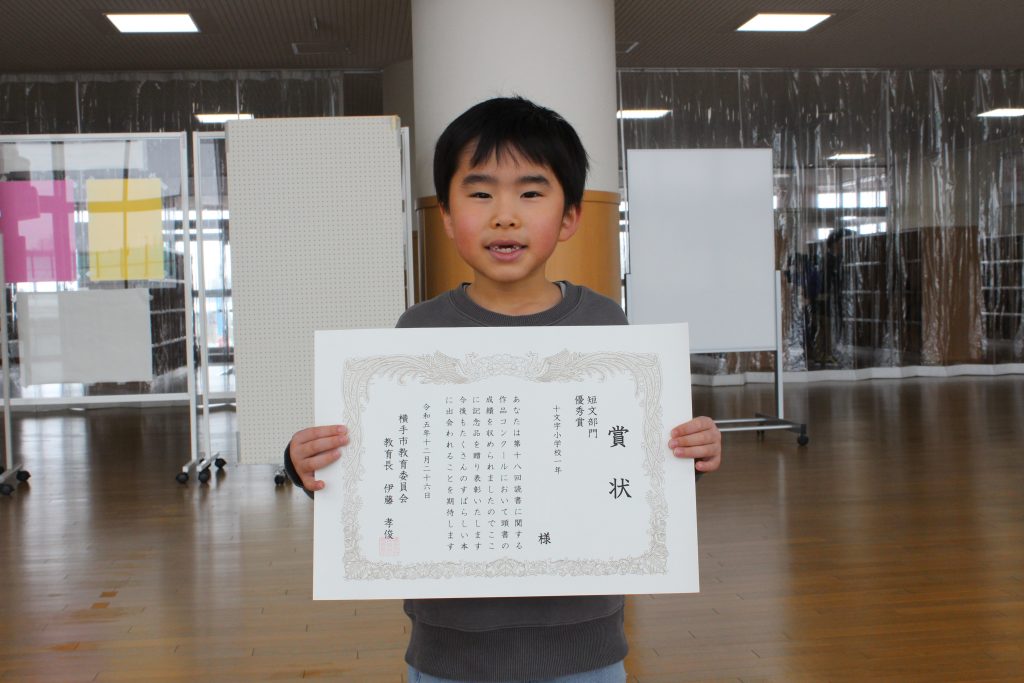 賞状
短文部門
優秀賞
十文字小学校一年
様
あなたは第十八回読書に関する
作品コンクールにおいて頭書の
成績を収められましたのでここ
に記念品を贈り表彰いたします
今後もたくさんのすばらしい本
に出会われることを期待します
令和五年十二月二十六日
横手市教育委員会
教育長 伊藤 孝俊